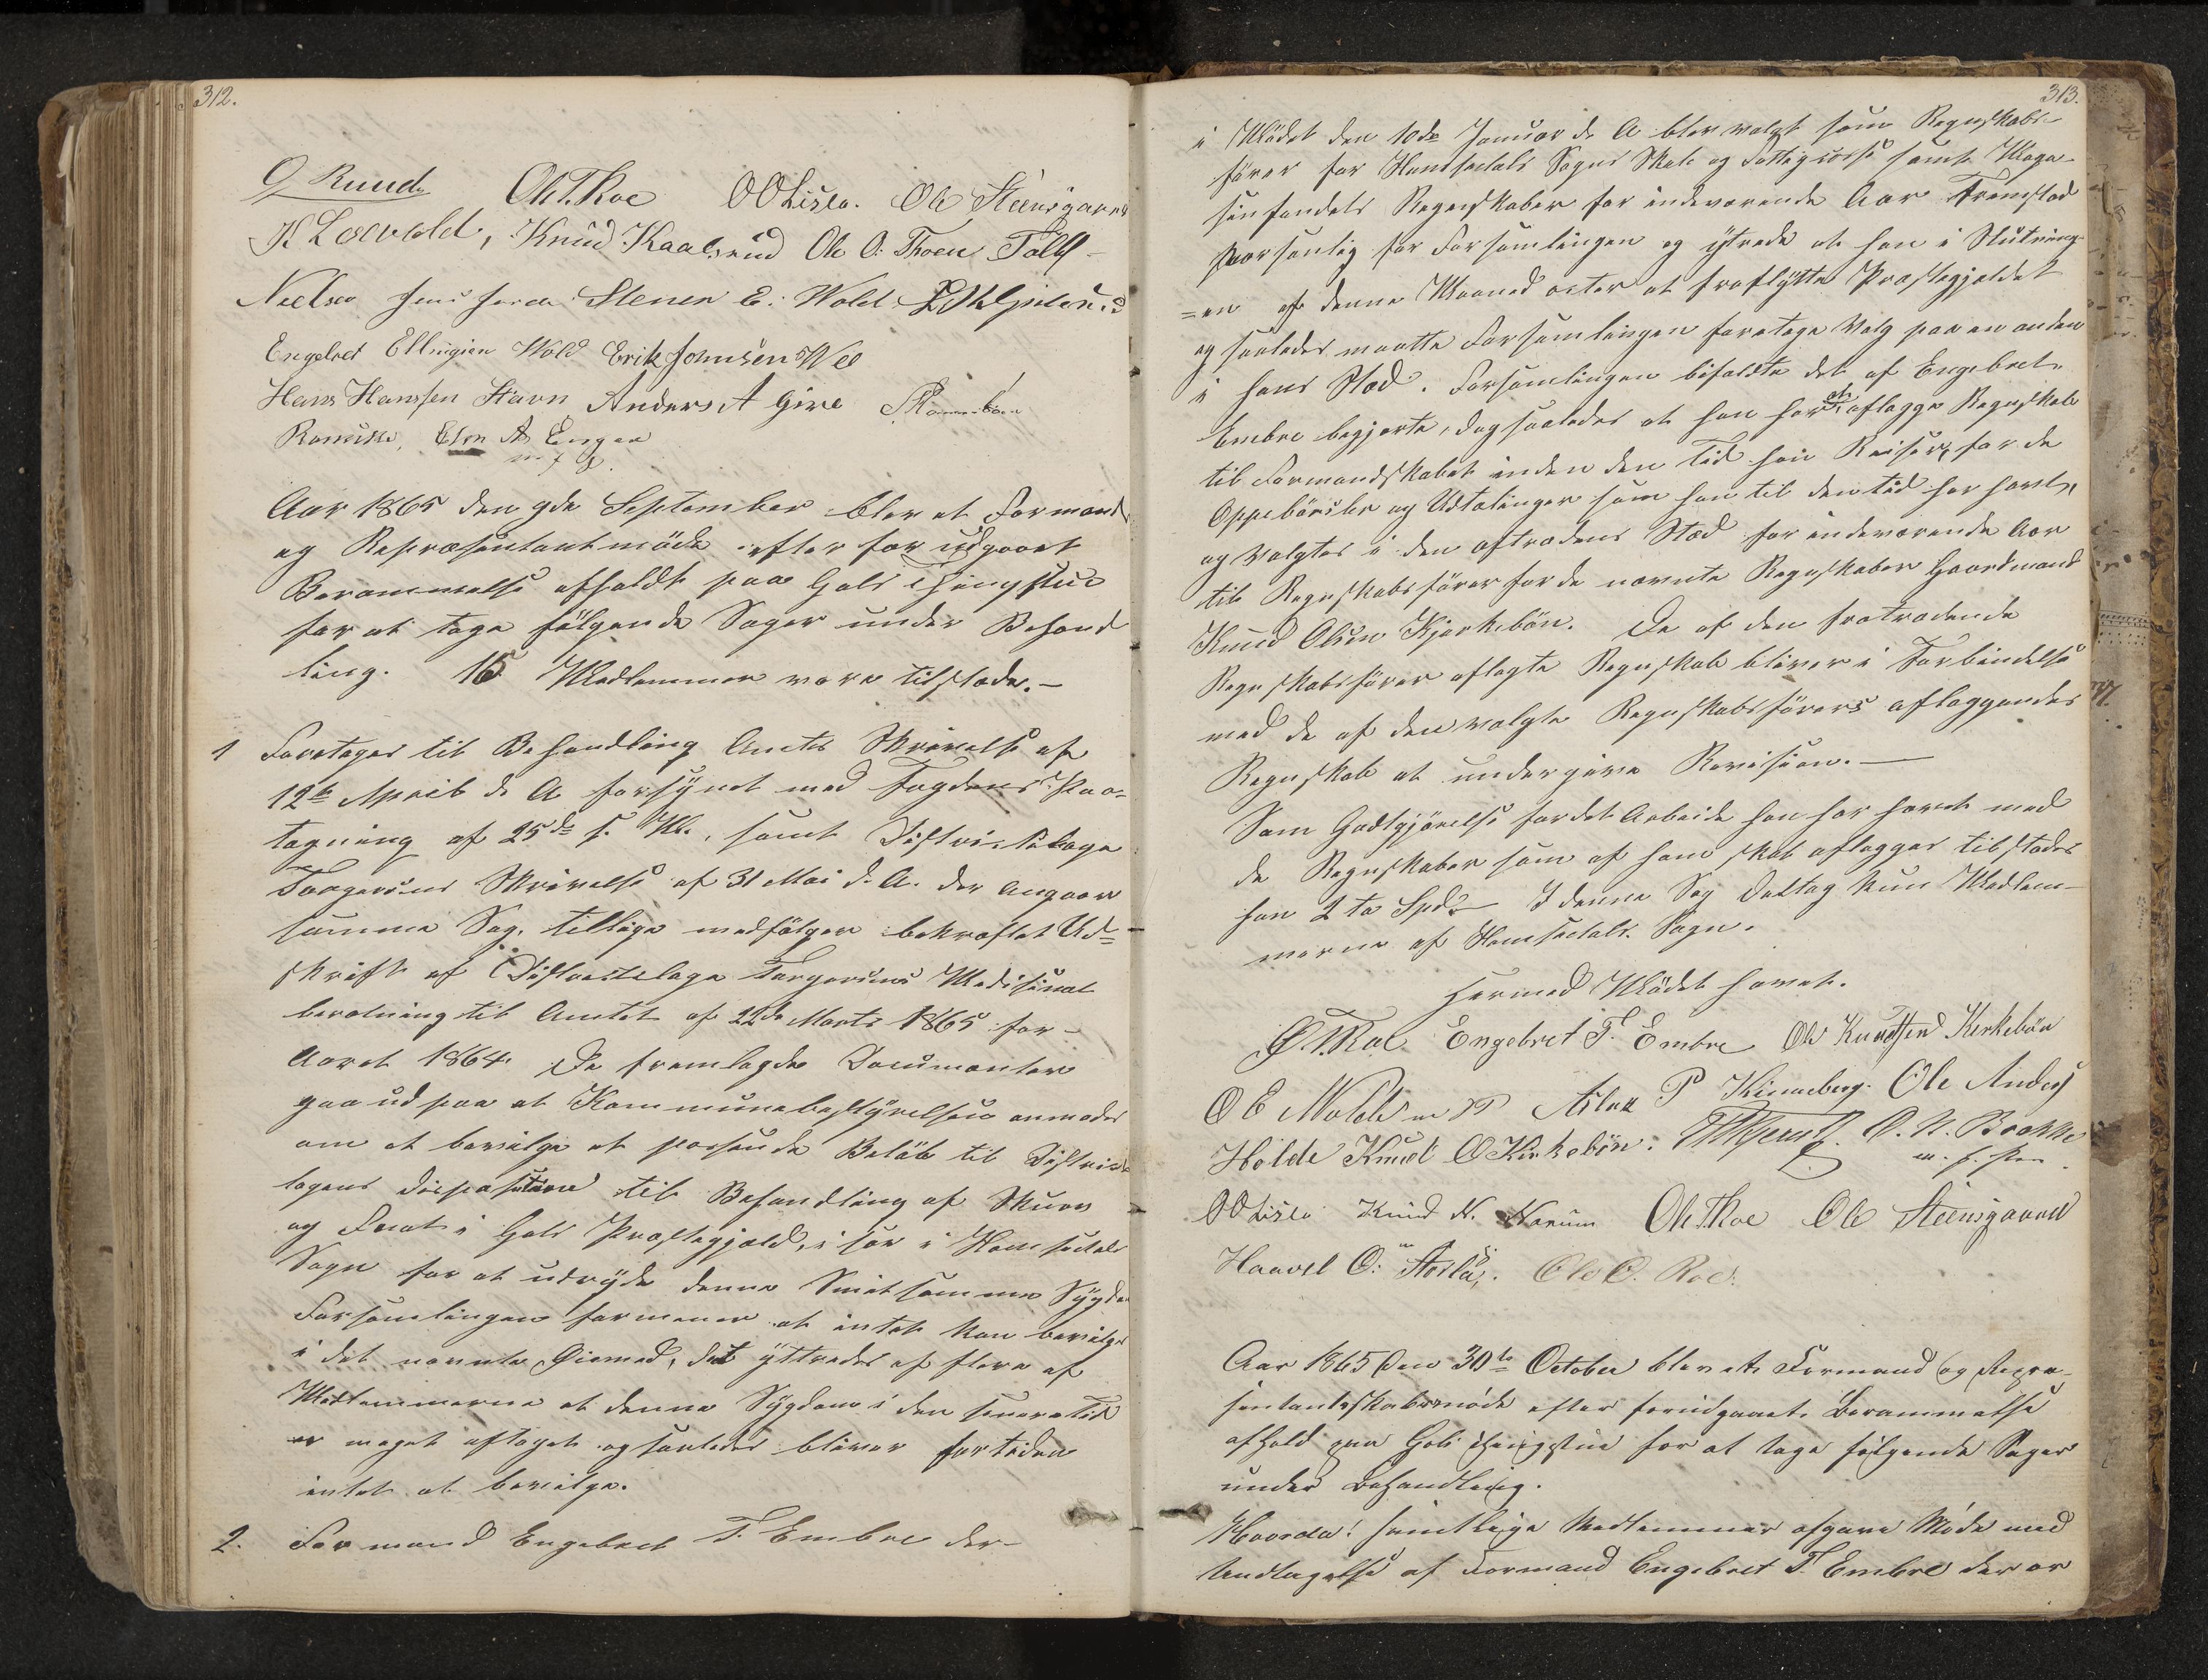 312.
O Ruud Ole T. Roe O O Lislo. Ole Steensgaard
K Löevold, Knud Kaalsrud Ole O. Thoen Tollef
Nielsen Jens Stener E. Wold
Engebret Ellingsen Wold Erik Johnsen
Hans Hanssen Stavn Anders A Gire
Elen As Enger
m f P.
Aar 1865 den 9de September blev et Formand
og Repræsentantmöde efter forudgaaet
Berammelse afholdt paa Gols Thingstue
for at tage fölgende Sager under Behand
ling. 15 Medlemmer vare tilstæde. –
1 Foretoges til Behandling Amtets Skrivelse af
12te April d. A. forsynet med Fogdens Paa-
tegning af 25de s. M., samt Distriktslæge
Skrivelse af 31 Mai d. A. der angaar
samme Sag, tillige medfölger bekræftet Ud=
skrift af Distriktslæge Medisinal
beretning til Amtet af 22de Marts 1865 for
Aaret 1864. De fremlagde Documenter
gaa ud paa at Kommunebestyrelsen anmodes
om at bevilge et passende Belöb til Distrikts
lægens disposition til Behandling af Skurv
og Fnat i Gols Præstegjæld, især i Hemsedals
Sogn for at udryde denne Smitsomme Sygdom
Forsamlingen formener at intet kan bevilges
i det nævnte Öiemed, det yttredes af flere af
Medlemmerne at denne Sygdom i den senere Tid
er meget aftaget og saaledes bliver for tiden
intet at bevilge.
2. Formand Engebret T. Embre der-
313.
i Mödet den 10de Januar d. A. blev valgt som Regnskabs-
förer for Hemsedals Sogns Skole og Fattigkasse samt Maga-
sinfondets Regnskaber for indeværende Aar Fremstod
personlig for Forsamlingen og ytrede at han i Slutning
=en af denne Maaned agter at fraflytte Præstegjeldet
og saaledes maatte Forsamlingen foretage Valg paa en anden
i hans Sted. Forsamlingen bifaldte det af Engebret
Embre begjærte, dog saaledes at han har at aflægge Regnskab
til Formandskabet inden den Tid han Reiser, for de
Oppebörsler og Udtælinger som han til den tid har havt,
og Valgtes i den aftrædens Sted for indeværende Aar
til Regnskabsförer for de nævnte Regnskaber Gaardmand
Knud Olsen Kjerkebön. De af den fratrædende
Regnskabsförer aflagte Regnskab bliver i Forbindelse
med de af den valgte Regnskabsförers aflæggendes
Regnskab at undergive Revision. –
Som Godtgjörelse for det Arbeide han har havt med
de Regnskaber som af ham skal aflægges tilstodes
han 2 to Spd. – I denne Sag deltog kun Medlem-
merne af Hemsedals Sogn.
Hermed Mödet hævet.
Engebret T. Embre Ole Knudsen Kirkebön
O E Wold m P Aslak P Kinneberg. Ole Anders
Holde Knud O Kirkebön. O. N. Bakke
m. f. Pen
O O Lislo Knud N. Norum Ole T Roe Ole Steensgaard
Haavel O. Ole O. Roe.
Aar 1865 den 30te October blev et Formand og Repræ-
sentantskabsmöde efter forudgaaet Berammelse
afhold paa Gols Thingstue for at tage fölgende Sager
under Behandling.
samtlige Medlemmer afgave Möde med
Undtagelse af Formand Engebret T. Embre der er